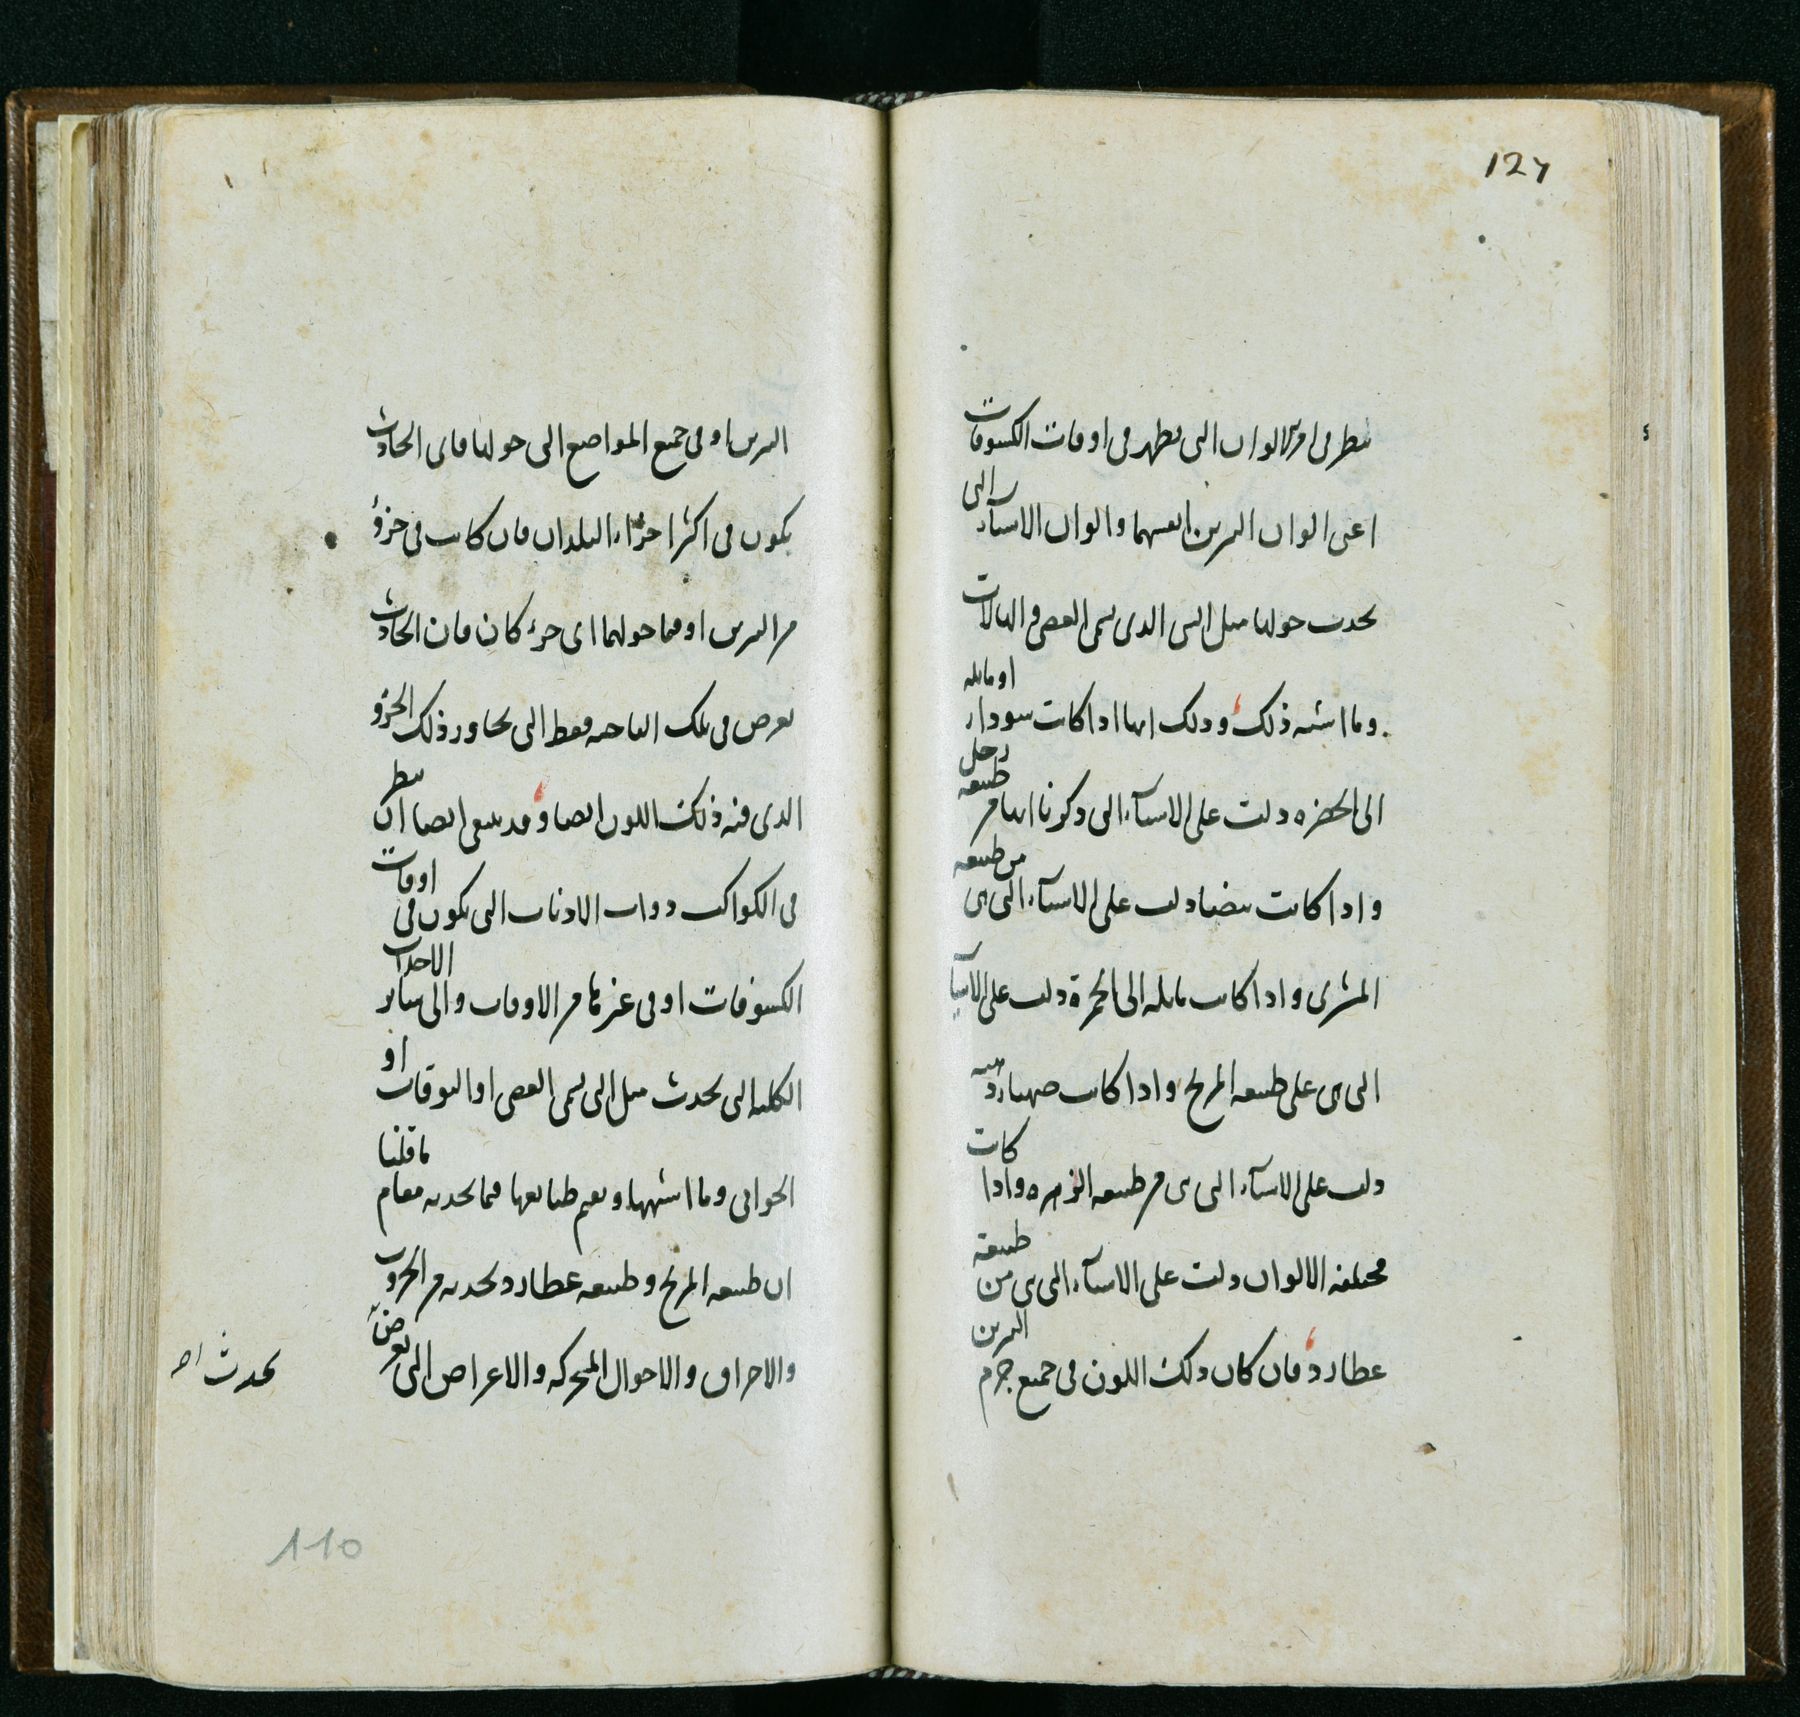 127
ينظر في امر الالوان التي تظهر في اوقات الكسوفات
اعني الوان النيرين انفسهما والوان الاشياء التي
تحدث حولها مثل الشي الذي يسمى العصي والهالات
وما اشبه ذلك وذلك انها اذا كانت سوداء او مايله
الى الخضرة دلت على الاشياء التي ذكرنا انها من طبيعه زحل
واذا كانت بيضا دلت على الاشياء التي هي من طبيعه
المشتري واذا كانت مايله الى الحمرة دلت على الاشيا
التي هي على طبيعه المريخ واذا كانت صهبا
دلت على الاشياء التي هي من طبيعه الزهره واذا كانت
مختلفه الالوان دلت على الاشياء التي هي من طبيعة
عطارد فان كان ذلك اللون في جميع جرم النيرين
النيرين او في جميع المواضع التي حولها فان الحادث
يكون في اكثر اجزاء البلدان فان كانت في جزؤ
من النيرين او فيما حولهما اي جزء كان فان الحادث
يعرض في تلك الناحيه فقط التي تجاور ذلك الجزو
الذي فيه ذلك اللون ايضا وقد ينبغي ايضا ان ينظر
في الكواكب ذوات الاذناب التي تكون في اوقات
الكسوفات او في غيرها من الاوقات والى ساير الاحداث
الكليه التي تحدث مثل التي تسمى العصي او البوقات او
الخوابي وما اشبهها ويعم طبايعها فيما تحدثه مقام ما قلنا
ان طبيعه المريخ وطبيعه عطارد تحدثه من الحروب
والاحراق والاحوال المحركه والاعراض التي تعرض
تحدث
110